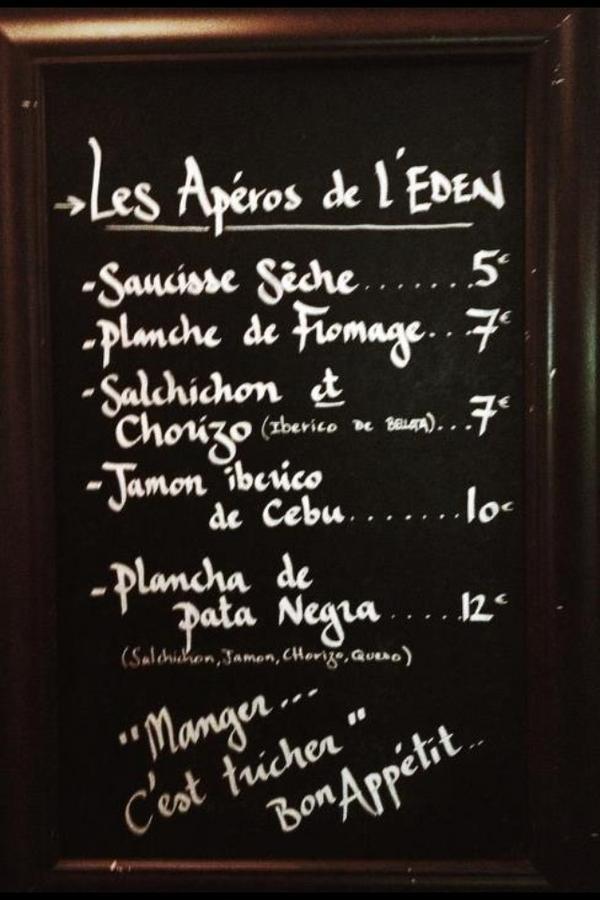 →Les Apéros de l'EDEN
-Saucisse Sèche.......5€
-Planche de Fromage...7€
-Salchichon et
Chorizo (Iberico DE BELLOTA)...7€
-Jamon iberico
de Cebu.......10€
-Plancha de
Pata Negra.....12€
(Salchichon, Jamon, CHorizo, Queso)
"Manger...
C'est tricher"
Bon Appétit...